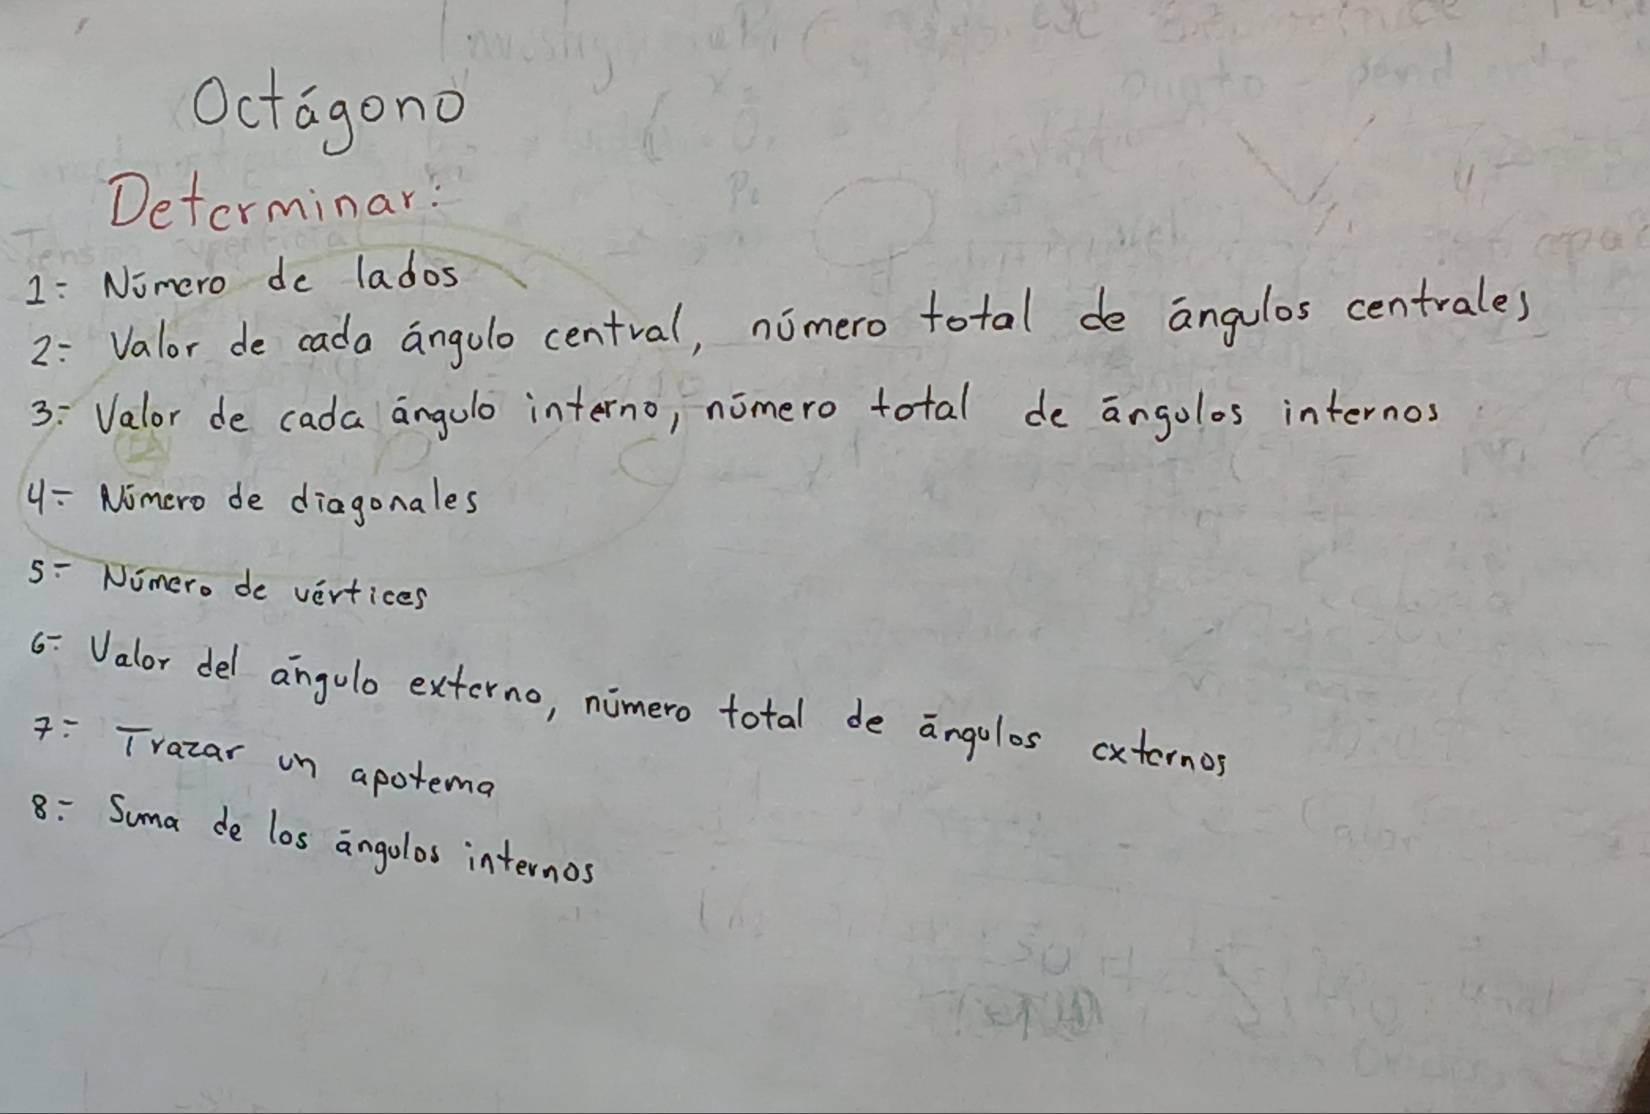 Octágono
Determinar:
1:- Número de lados
2:- Valor de cada ángulo central, número total de ángulos centrales
3:- Valor de cada ángulo interno, número total de ángulos internos
4:- Número de diagonales
5:- Número de vértices
6:- Valor del ángulo externo, número total de ángulos externos
7:- Trazar un apotema
8:- Suma de los ángulos internos